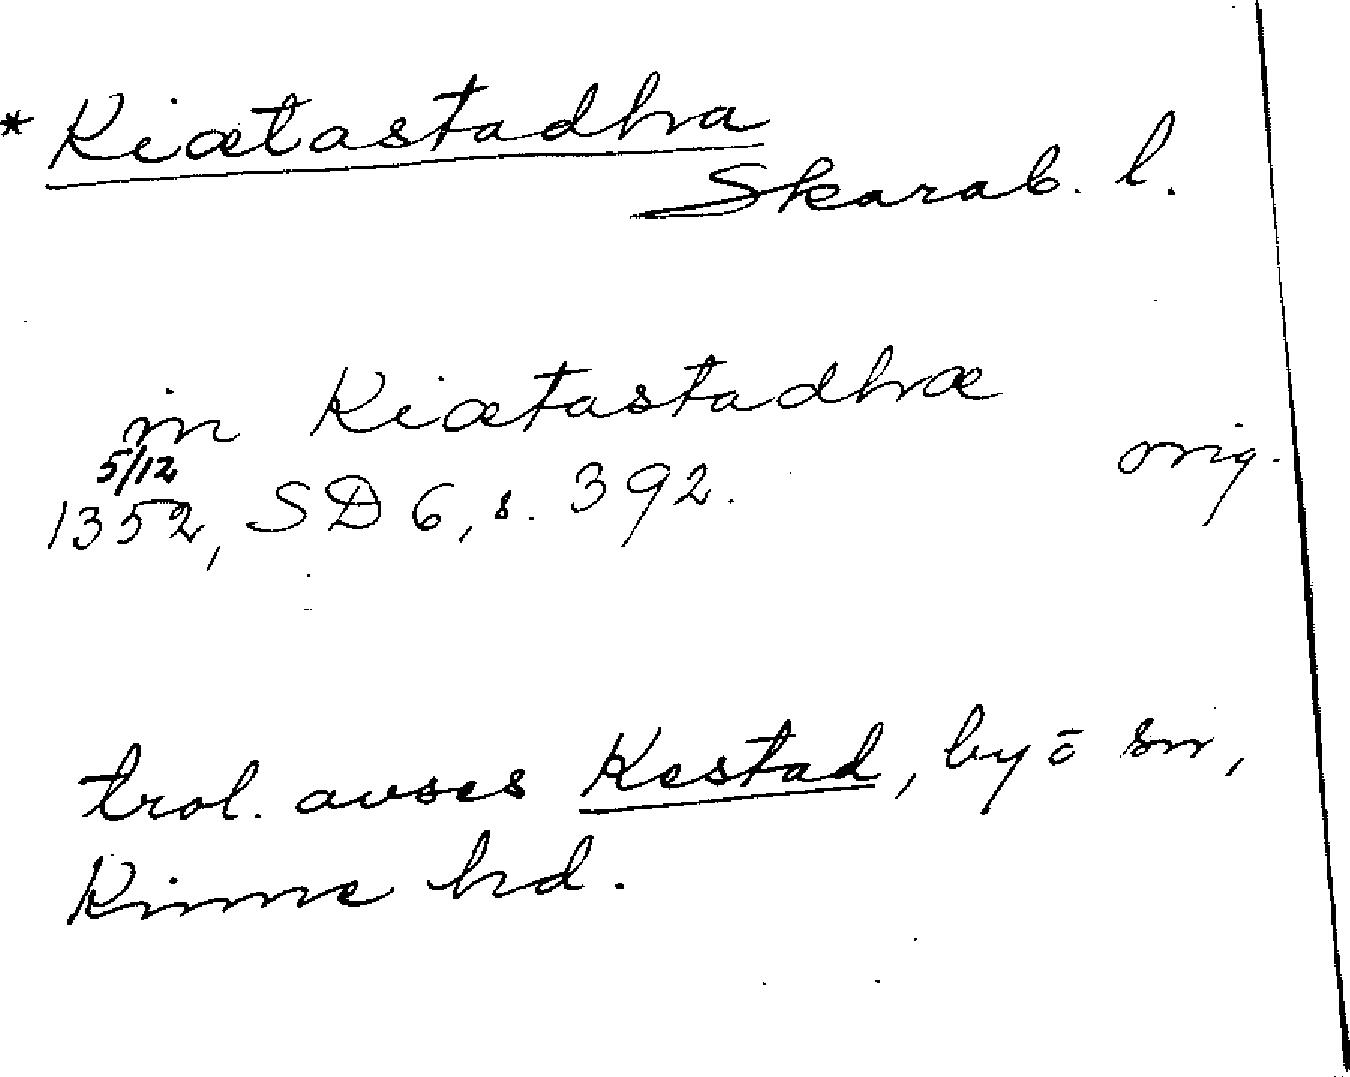 * Kiætastadhra
Skarab. l.
in Kiætastadhræ
orig.
5/12
1352, SD 6, s. 392.
trol. avses Kestad, by o sn,
Kinne hd.